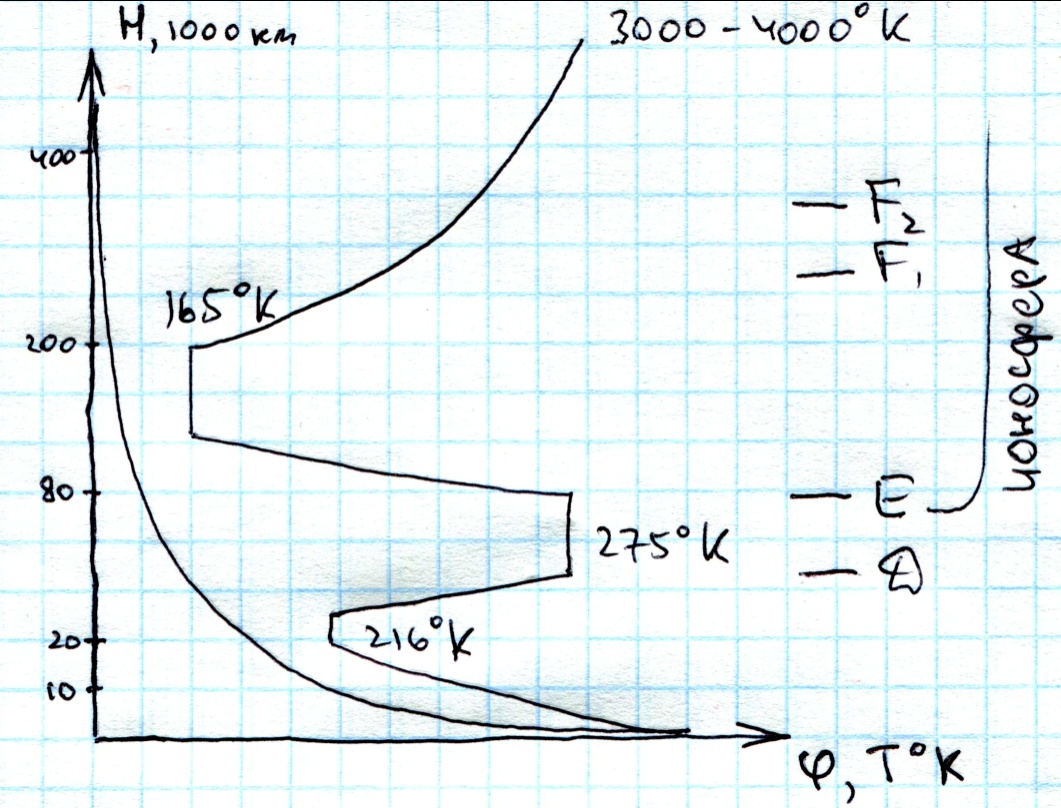 H, 1000 км
3000 - 4000°K
400
F₂
F₁
165°K
200
ИОНОСФЕРА
80
E
275°K
D
216°K
20
10
φ, T°K